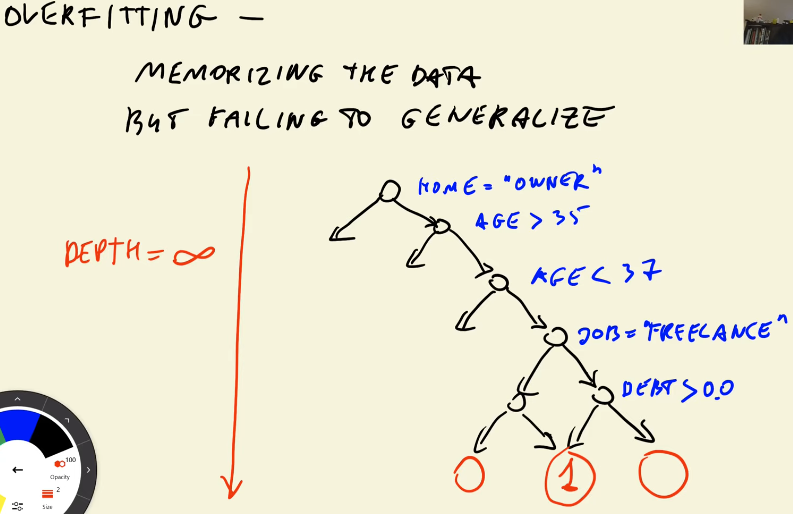 OVERFITTING —
MEMORIZING THE DATA
BUT FAILING TO GENERALIZE
HOME = "OWNER"
AGE > 35
DEPTH = ∞
AGE < 37
JOB = "FREELANCE"
DEBT > 0.0
1
100
Opacity
2
Size